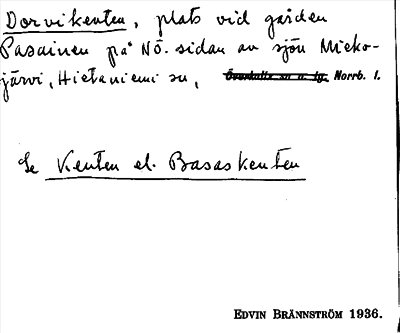 Dorvikenten, plats vid gården
Pasainen på NÖ. sidan av sjön Mieko-
järvi, Hietaniemi sn, Överkalix sn o. tg. Norrb. l.
Se Kenten el. Basaskenten
EDVIN BRÄNNSTRÖM 1936.